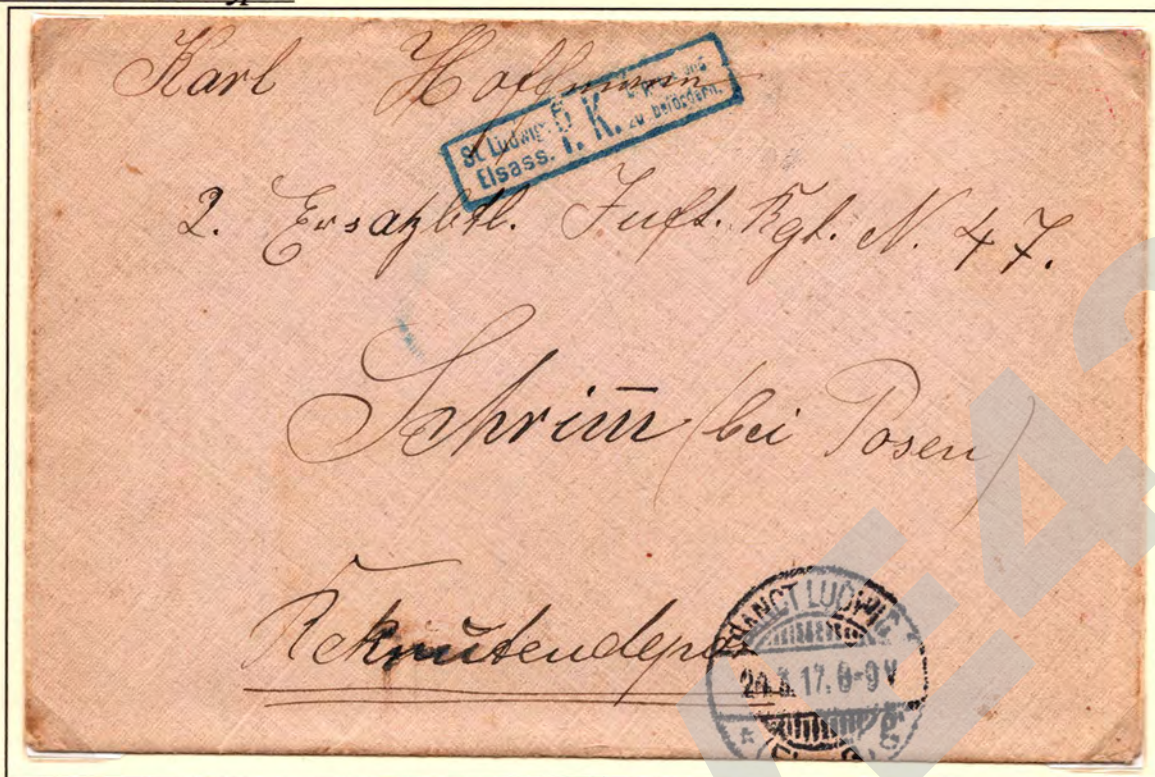 Karl Hoffmann
St. Ludwig
Elsass. P. K. zu befördern.
2. Ersatzbtl. Inft. Rgt. N. 47.
Schrim̄ (bei Posen)
Rekrutendepot
SANCT LUDWIG
17. 8-9 V